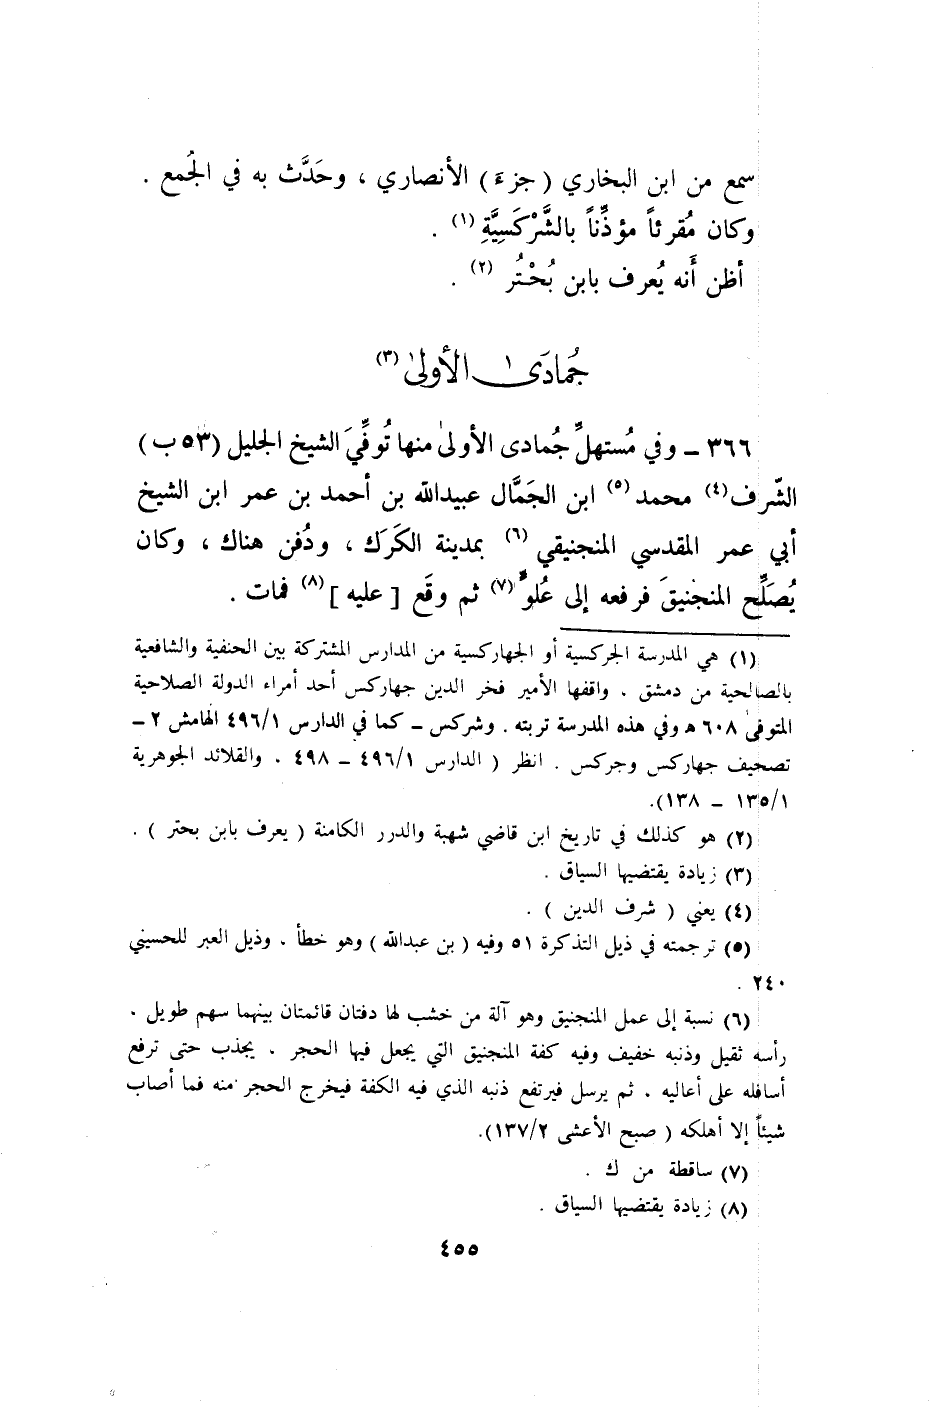 سمع من ابن البخاري ( جزءَ ) الأنصاري ، وحَدَّث به في الجُمع .
وكان مُقرئاً مؤذِّناً بالشَّرْكَسِيَّةِ (١) .
أظن أَنه يُعرف بابن بُحْتُر (٢) .
جُمادَى الأولى (٣)
٣٦٦ ــ وفي مُستهلِّ جُمادى الأولى منها تُوفِّيَ الشيخ الجليل (٥٣ب)
الشّرف(٤) محمد(٥) ابن الجَمَّال عبيدالله بن أحمد بن عمر ابن الشيخ
أبي عمر المقدسي المنجنيقي (٦) بمدينة الكَرَك ، ودُفن هناك ، وكان
يُصَلِّح المنجنيقَ فرفعه إلى عُلو (٧) ثم وقَع [ عليه ](٨) فمات .
(١) هي المدرسة الجركسية أو الجهاركسية من المدارس المشتركة بين الحنفية والشافعية
بالصالحية من دمشق . واقفها الأمير فخر الدين جهاركس أحد أمراء الدولة الصلاحية
المتوفى ٦٠٨ هـ وفي هذه المدرسة تربته . وشركس ــ كما في الدارس ٤٩٦/١ الهامش ٢ ــ
تصحيف جهاركس وجركس . انظر ( الدارس ٤٩٦/١ ــ ٤٩٨ . والقلائد الجوهرية
١٣٥/١ ــ ١٣٨).
(٢) هو كذلك في تاريخ ابن قاضي شهبة والدرر الكامنة ( يعرف بابن بحتر ) .
(٣) زيادة يقتضيها السياق .
(٤) يعني ( شرف الدين ) .
(٥) ترجمته في ذيل التذكرة ٥١ وفيه ( بن عبدالله ) وهو خطأ . وذيل العبر للحسيني
٢٤٠ .
(٦) نسبة إلى عمل المنجنيق وهو آلة من خشب لها دفتان قائمتان بينهما سهم طويل .
رأسه ثقيل وذنبه خفيف وفيه كفة المنجنيق التي يجعل فيها الحجر . يجذب حتى ترفع
أسافله على أعاليه . ثم يرسل فيرتفع ذنبه الذي فيه الكفة فيخرج الحجر منه فما أصاب
شيئاً إلا أهلكه ( صبح الأعشى ١٣٧/٢).
(٧) ساقطة من ك .
(٨) زيادة يقتضيها السياق .
٤٥٥